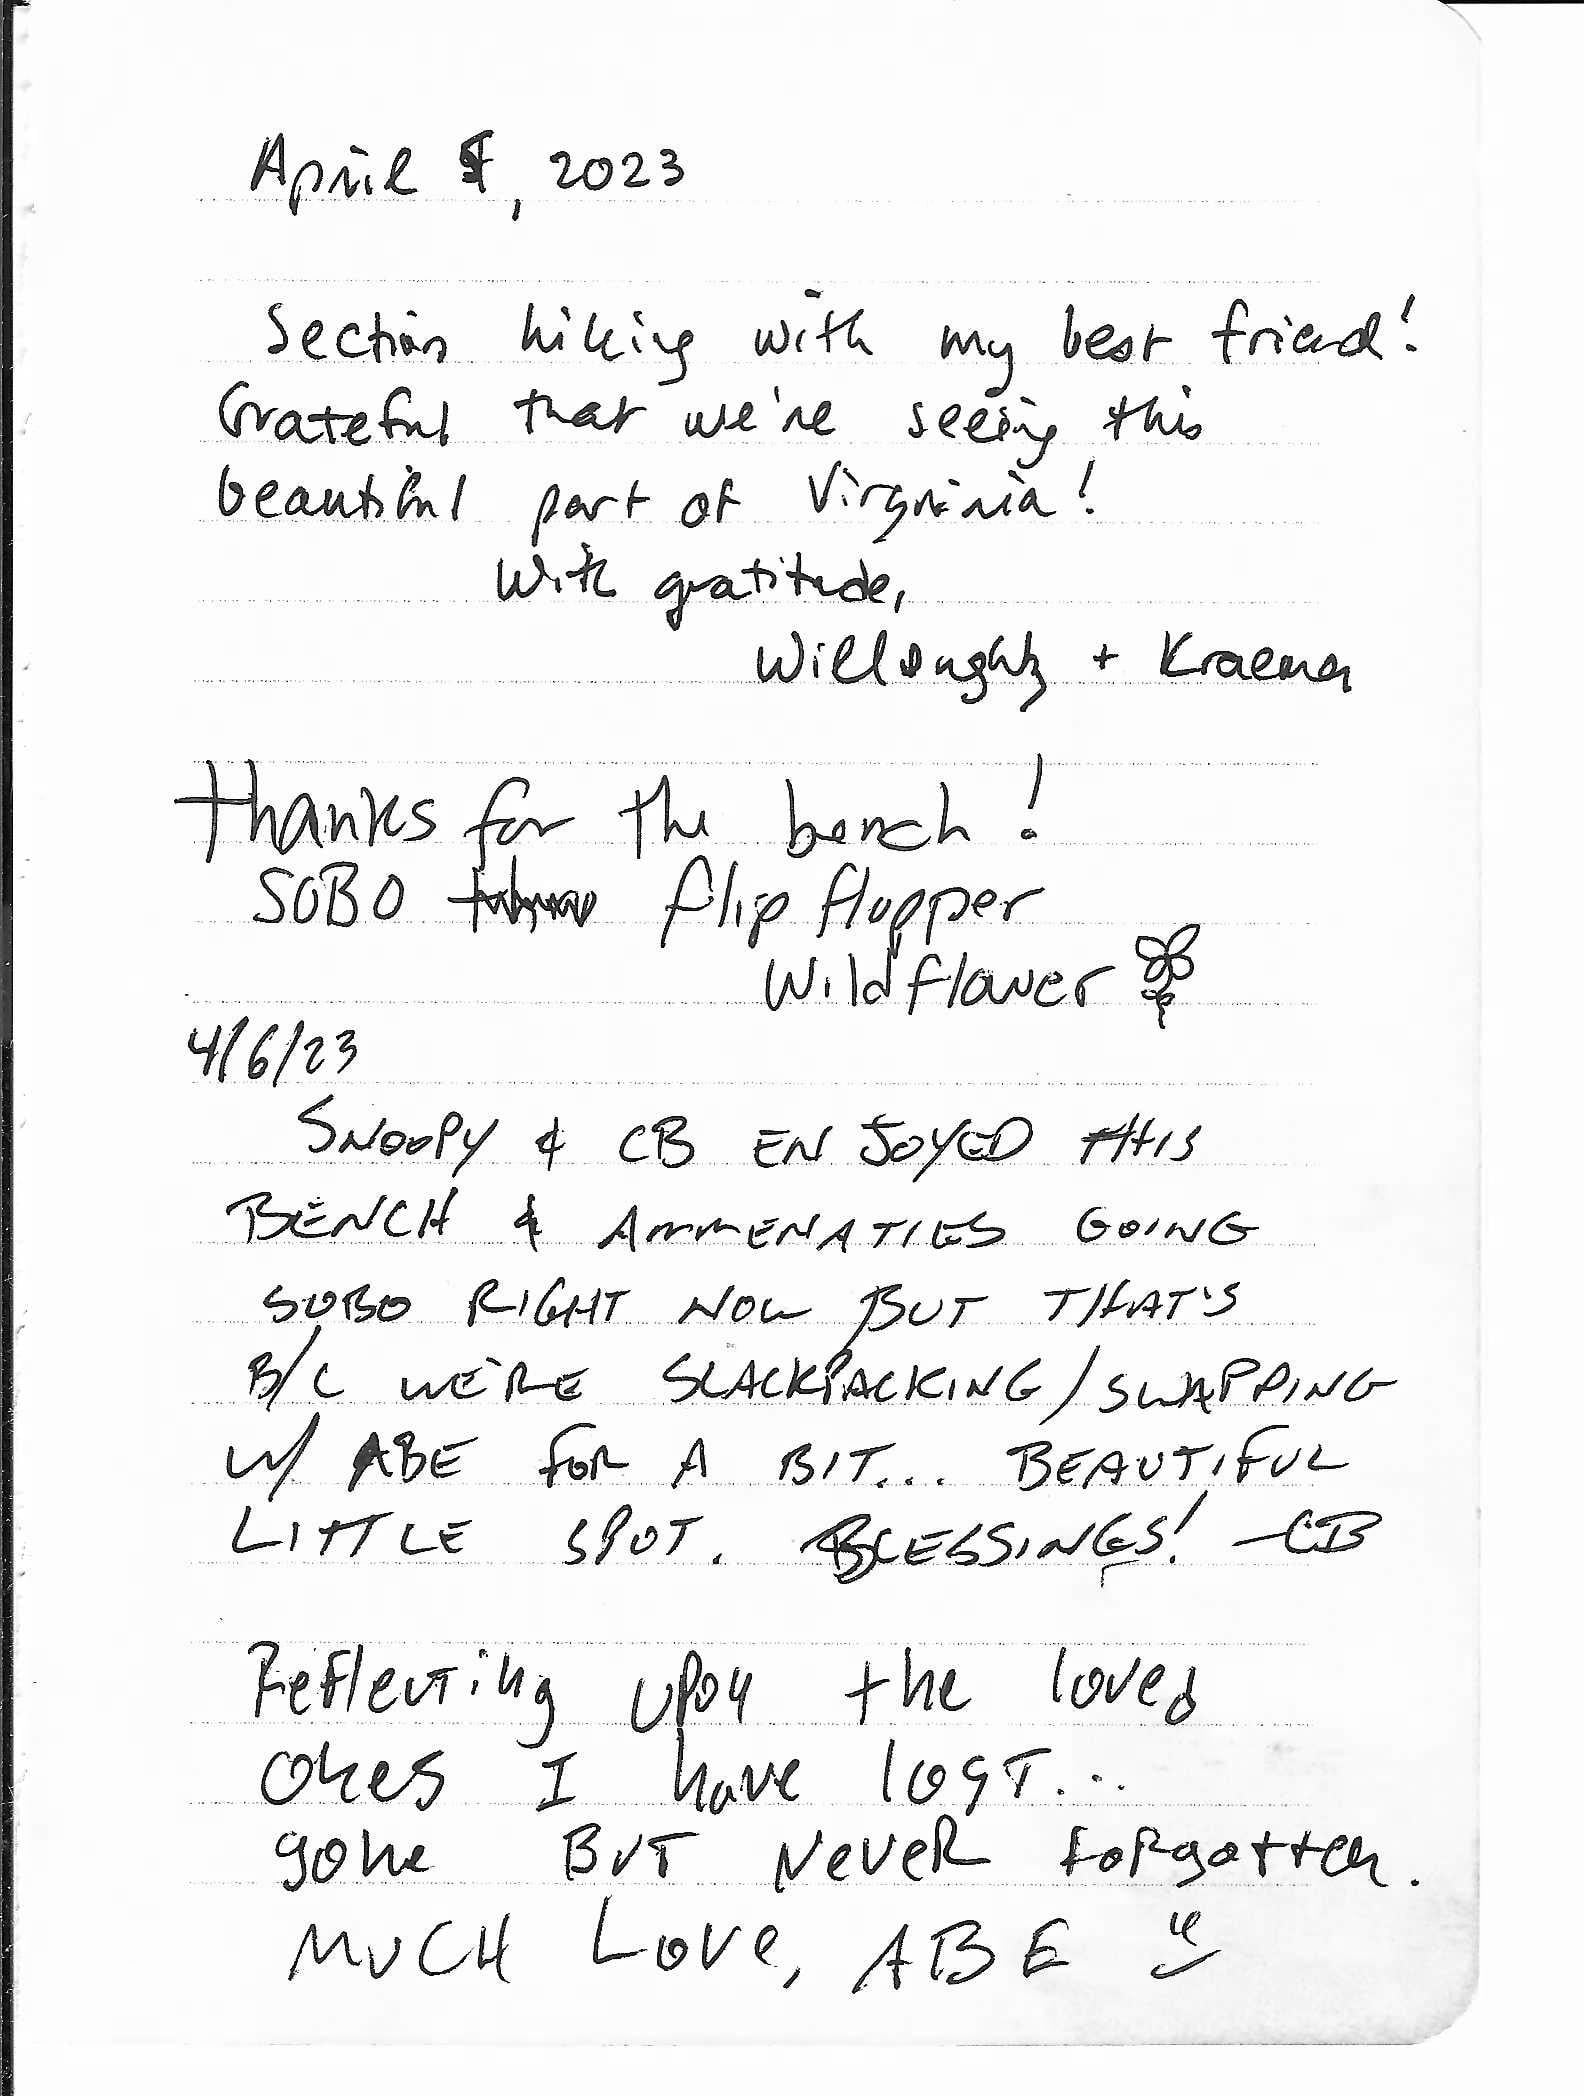 April 5, 2023
Section hiking with my best friend!
Grateful that we're seeing this
beautiful part of Virginia!
With gratitude,
Willoughby + Kraemer
Thanks for the bench!
SOBO flip flopper
Wildflower
4/6/23
SNOOPY & CB ENJOYED THIS
BENCH & AMMENATIES GOING
SOBO RIGHT NOW BUT THAT'S
B/C WE'RE SLACKPACKING/SWAPPING
W/ ABE FOR A BIT... BEAUTIFUL
LITTLE SPOT. BLESSINGS! -CB
Reflecting upon the loved
ones I have lost...
gone BUT NeveR forgotten.
MUCH Love, ABE